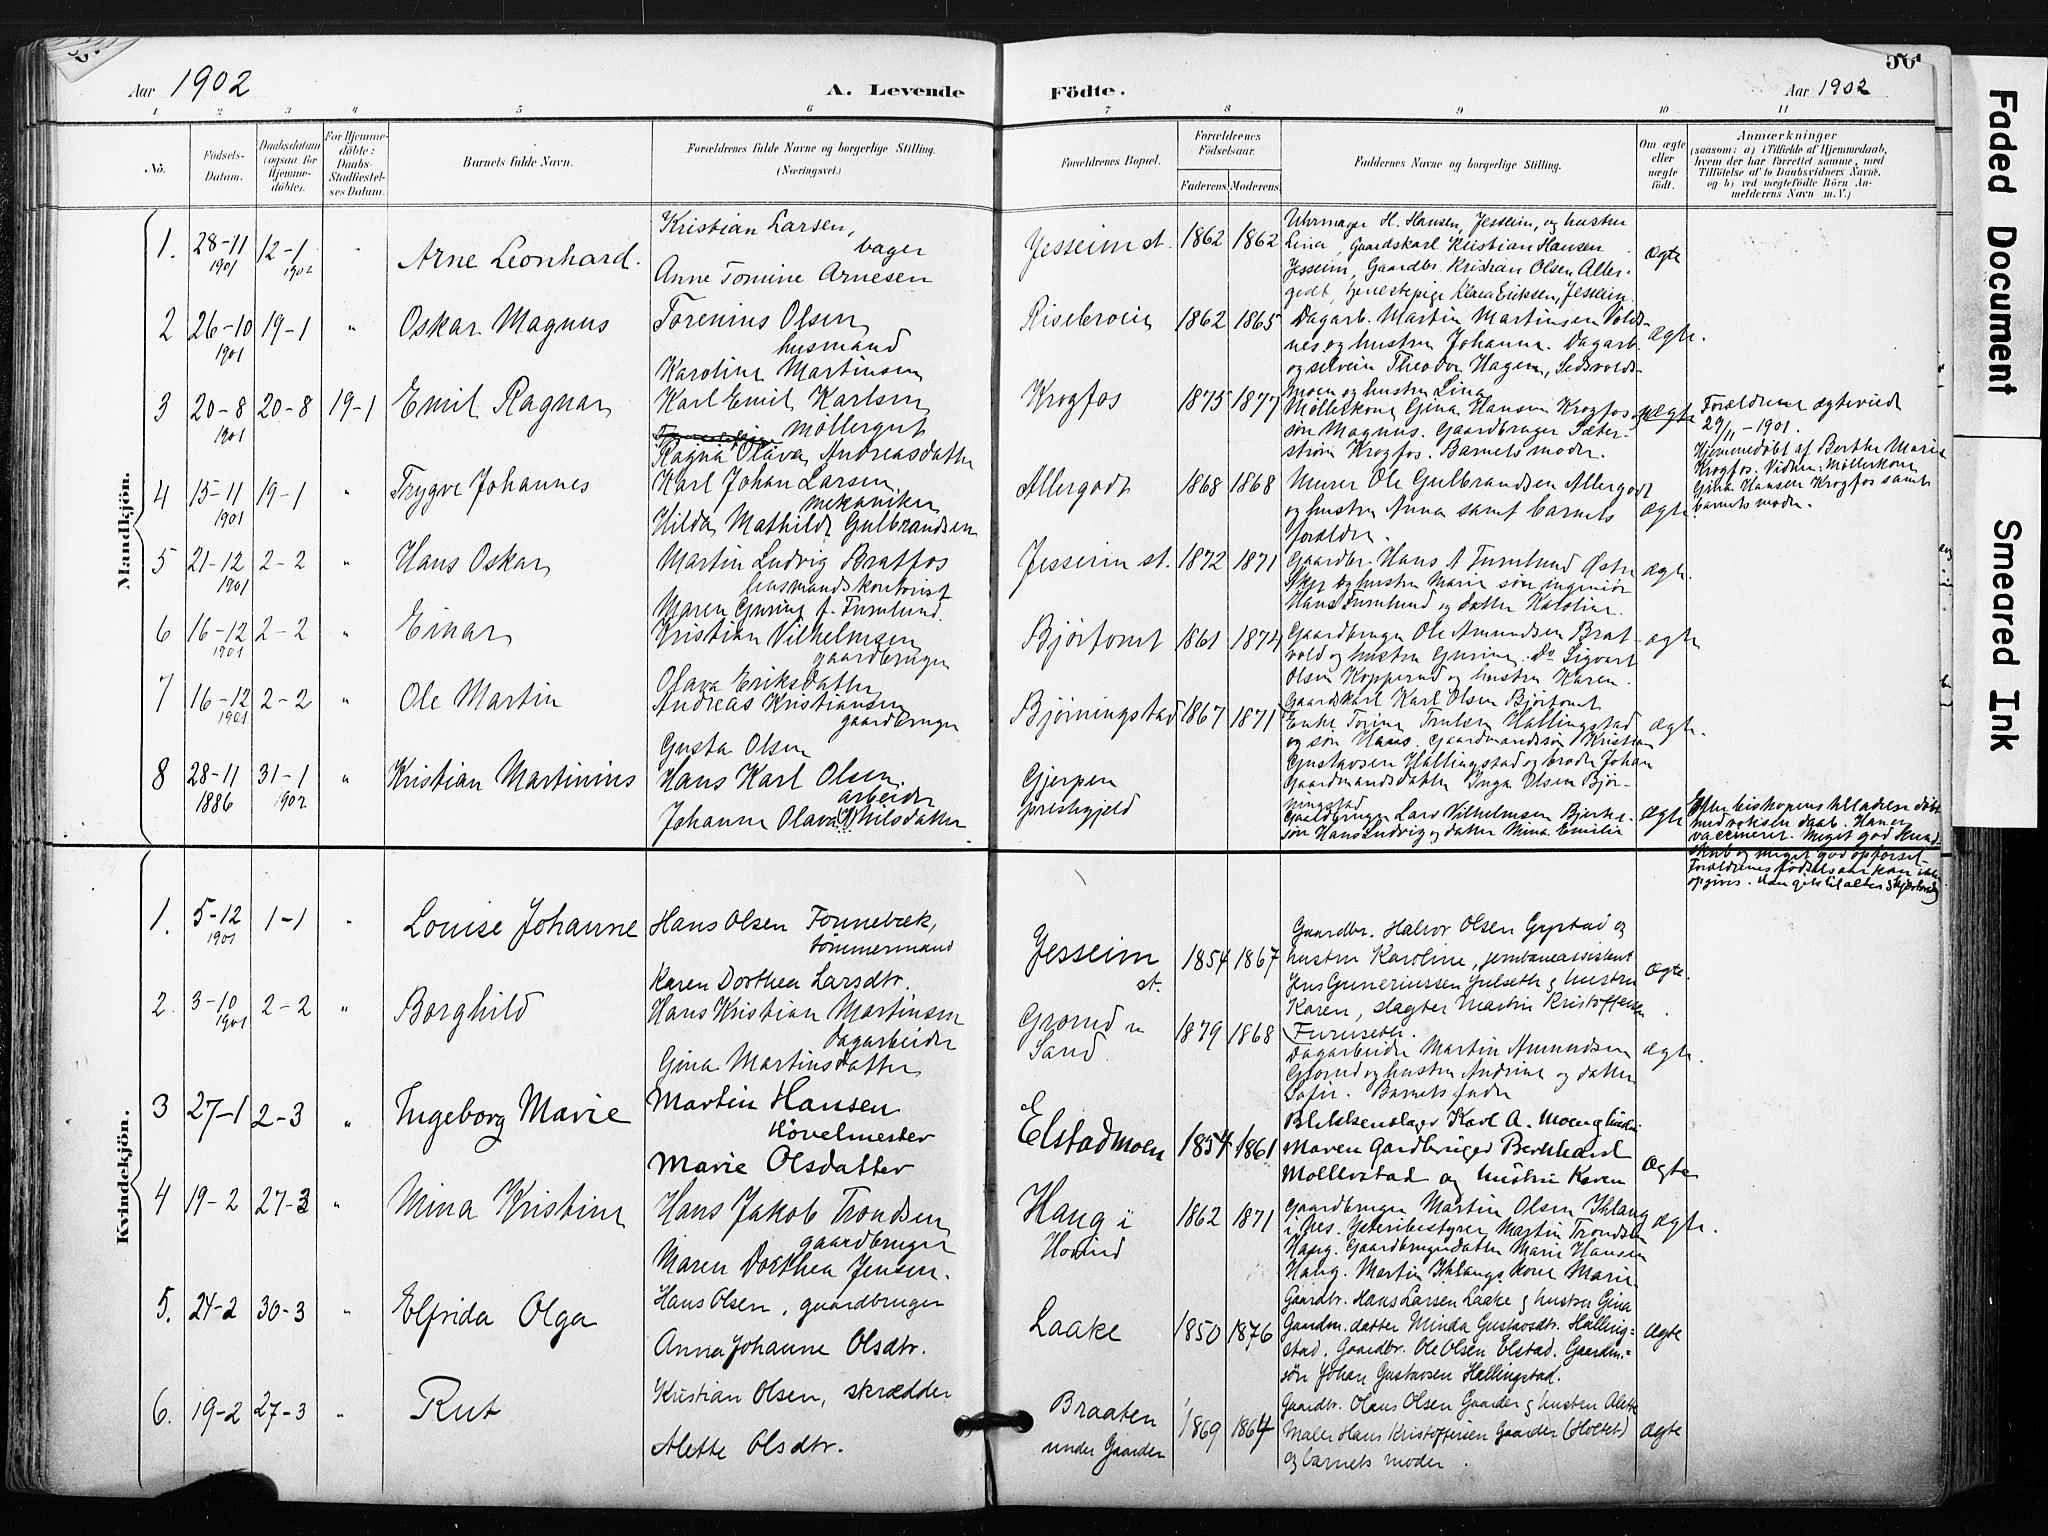 Aar 1902
A. Levende
Födte.
Aar 1902
50
1 2 3 4 5 6 7 8 9 10 11
No.
Födsels-
Datum.
Daabsdatum
(ogsaa for
Hjemme-
döbte).
For Hjemme-
döbte:
Daabs-
Stadfæstel-
ses Datum.
Barnets fulde Navn.
Forældrenes fulde Navne og borgerlige Stilling.
(Næringsvei.)
Forældrenes Bopæl.
Forældrenes
Födselsaar.
Faderens. Moderens.
Faddernes Navne og borgerlige Stilling.
Om ægte
eller
uægte
födt.
Anmærkninger
(saasom: a) i Tilfælde af Hjemmedaab,
hvem der har forrettet samme, med
Tilföielse af to Daabsvidners Navne,
og b) ved uægtefödte Börn An-
melderens Navn m.V.)
Mandkjön.
1. 28-11 1901 12-1 1902 " Arne Leonhard. Kristian Larsen,
bager
Anne Tomine Arnesen
Jesseim st. 1862 1862
Uhrmager H. Hansen, Jesseim, og hustru
Lina, Gaardskarl Kristian Hansen
Jesseim, Gaardbr. Kristian Olsen Aller-
godt, tjenestepige Klara Eriksen, Jesseim.
ægte
2 26-10 1901 19-1 " Oskar Magnus Torenius Olsen
husmand
Karoline Martinsen
Risebroen 1862 1865
Dagarb. Martin Martinsen Volds-
nes og hustru Johanne. Dagarb.
og selveier Theodor Hagen, Sedsvolds-
moen og hustru Lina
ægte.
3 20-8 1901 20-8 19-1 Emil Ragnar Karl Emil Karlsen
Möllergut
Ragna Olava Andreasdatter
Krogfos 1875 1877
Möllerkone Gina Hansen Krogfos,
søn Magnus. Gaardbruger Sæter-
strøm Krogfos. Barnets moder.
uægte
Forældrene ægteviede
29/11-1901.
Hjemmedöbt af Berthe Marie
Krogfos. Vidner: Möllerkone
Gina Hansen Krogfos samt
barnets moder.
4 15-11 1901 19-1 " Trygve Johannes Karl Johan Larsen
mekaniker
Hilda Mathilde Gulbrandsen
Allergodt 1868 1868
Murer Ole Gulbrandsen Allergodt
og hustru Anna samt barnets
forældre.
ægte
5 21-12 1901 2-2 " Hans Oskar Martin Ludvig Bratfos
lensmandskontorist
Maren Gurine f. Furulund.
Jesseim st. 1872 1871
Gaardbr. Hans A Furulund Østre
og hustru Marie søn ingeniør
Hans Furulund og datter Karoline.
ægte.
6 16-12 1901 2-2 " Einar Kristian Vilhelmsen
gaardbruger
Olava Eriksdatter
Bjørtomt 1861 1874
Gaardbruger Ole Amundsen Brat-
vold og hustru Gurine. Do Sigvart
Olsen Kopperud og hustru Karen.
ægte
7 16-12 1901 2-2 " Ole Martin Andreas Kristiansen
gaardbruger
Gusta Olsen
Bjørningstad 1867 1871
Gaardskarl Karl Olsen Bjørtomt
Enke Torine Trulsen Hallingstad
og søn Hans. Gaardmandssøn Kristian
Gustavsen Hallingstad og broder Johan
Gaardmandsdatter Inga Olsen Bjør-
ningstad
ægte.
8 28-11 1886 31-1 1902 " Kristian Martinius Hans Karl Olsen
arbeider
Johanne Olava Nilsdatter
Gjerpen
præstegjeld
Gaardbruger Lars Vilhelmsen Bjerke.
søn Hans Ludvig og datter Mina Emilie
ægte
Efter biskopens tilladelse döbt
med voksen daab. Han er
vaccineret. Meget god kund-
skab og meget god opførsel.
Forældrenes fødselsaar kan ikke
opgives.
Kvindekjön.
1. 5-12 1901 1-1 " Louise Johanne Hans Olsen Tonnebæk,
tömmermand
Karen Dorthea Larsdtr.
Jesseim
st. 1854 1867
Gaardbr. Halvor Olsen Gystad og
hustru Karoline, jernbaneassistent
Jens Guneriussen Julseth og hustru
Karen, slagter Martin Kristoffersen
Furuseth.
ægte.
2. 3-10 1901 2-2 " Borghild Hans Kristian Martinsen
dagarbeider
Gina Martinsdatter
Grorud u
Sand. 1879 1868
Dagarbeider Martin Amundsen
Grorud og hustru Andrine og datter
Sofie. Barnets fader
ægte.
3 27-1 2-3 " Ingeborg Marie Martin Hansen
Hövelmester
Marie Olsdatter
Elstadmoen 1854 1861
Karl A. Moen og hustru
Maren Gardbruger Bernhard
Mollerstad og hustru Karen
ægte
4 19-2 27-3 " Mina Kristine Hans Jakob Trondsen
gaardbruger
Maren Dorthea Jensen.
Haug i
Hovind 1862 1871
Gaardbruger Martin Olsen Ihlang
i Nes. Martin Trondsen
Haug. Gaardbrugerdatter Marie Hansen
Haug. Martin Ihlangs kone Marie
ægte.
5. 24-2 30-3 " Elfrida Olga Hans Olsen, gaardbruger
Anna Johanne Olsdtr.
Laake 1850 1876
Gaardbr. Hans Larsen Laake og hustru Gina
Gaardm. datter Minda Gustavsdtr. Halling-
stad. Gaardbr. Ole Olsen Elstad. Gaardm.-
søn Johan Gustavsen Hallingstad.
ægte
6. 19-2 27-3 " Rut Kristian Olsen, skrædder
Alette Olsdtr.
Braaten
under Gaarder 1869 1864
Gaardbr. Olaus Olsen Gaarder og hustru Alette
Maler Hans Kristoffersen Gaarder (Holtet)
og barnets moder.
ægte
Faded Document
Smeared Ink